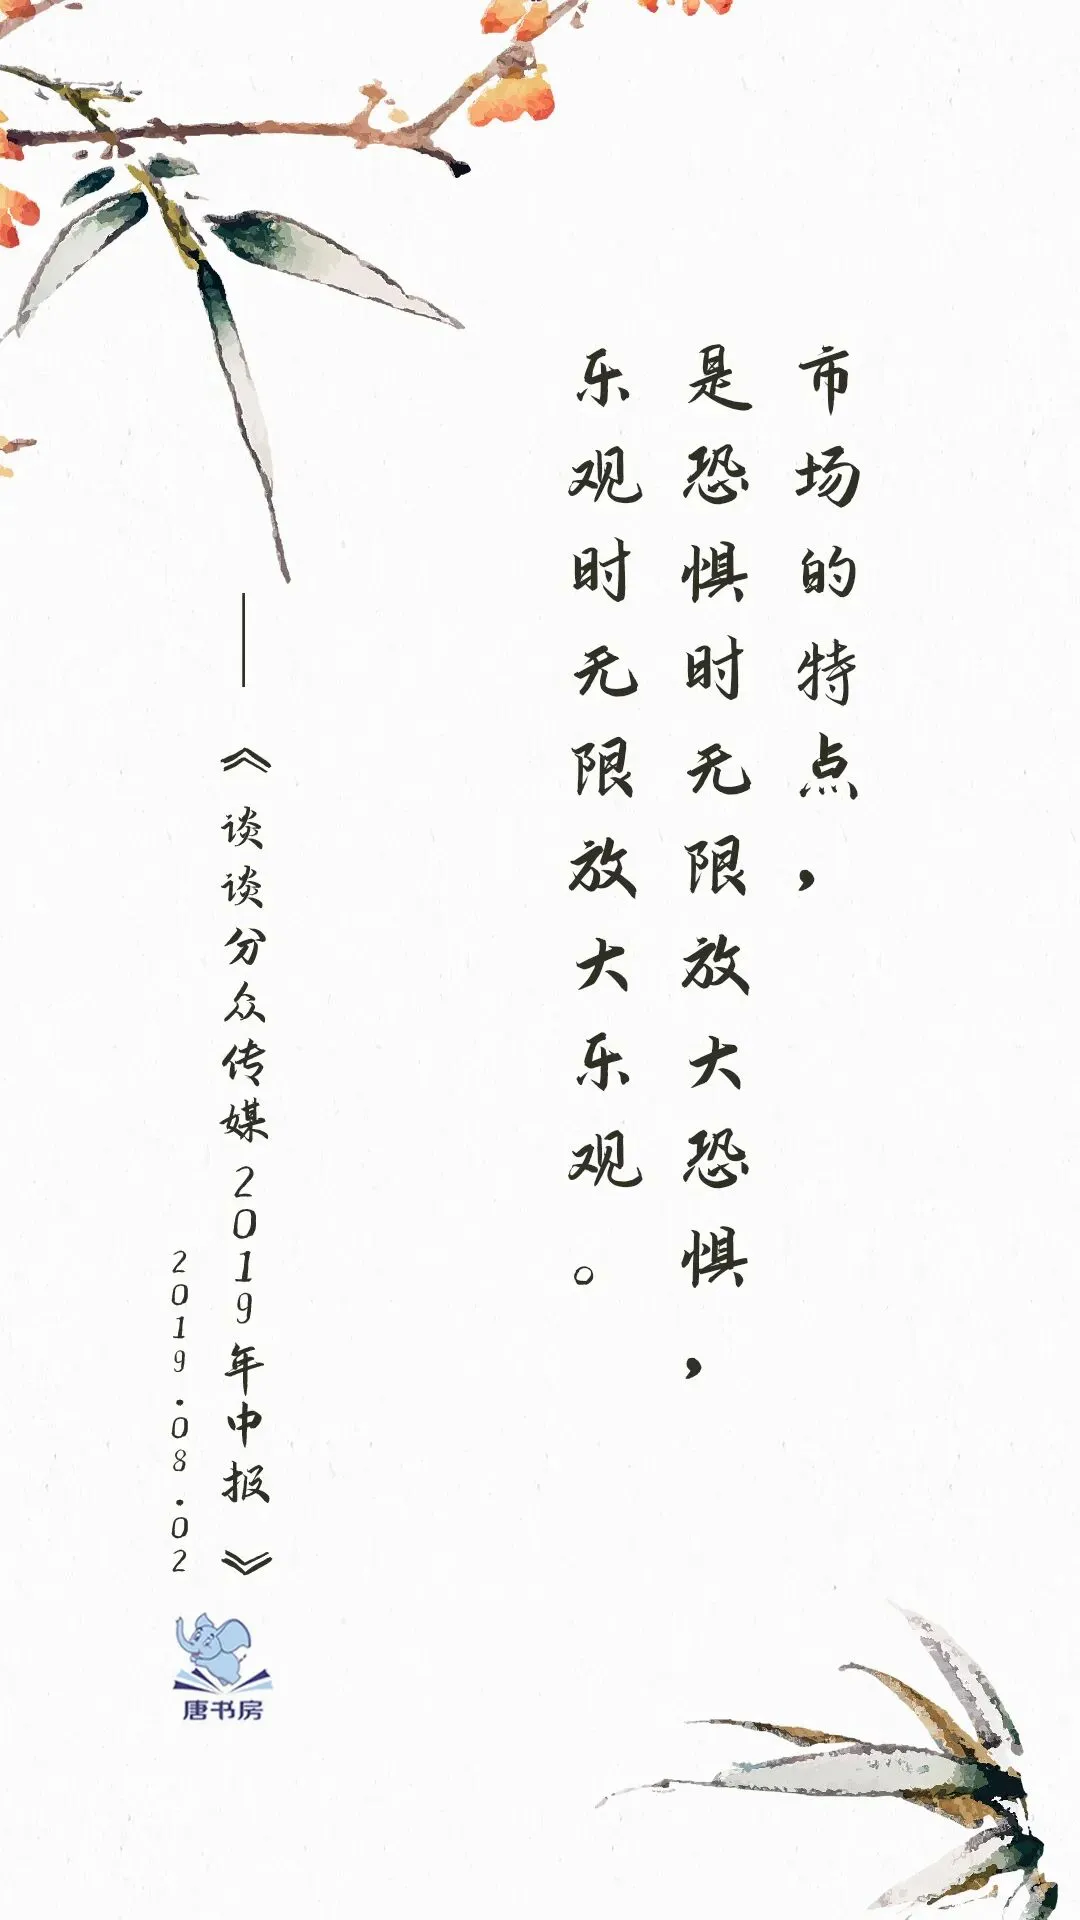 市场的特点，
是恐惧时无限放大恐惧，
乐观时无限放大乐观。
——《谈谈分众传媒2019年中报》
2019.08.02
唐书房